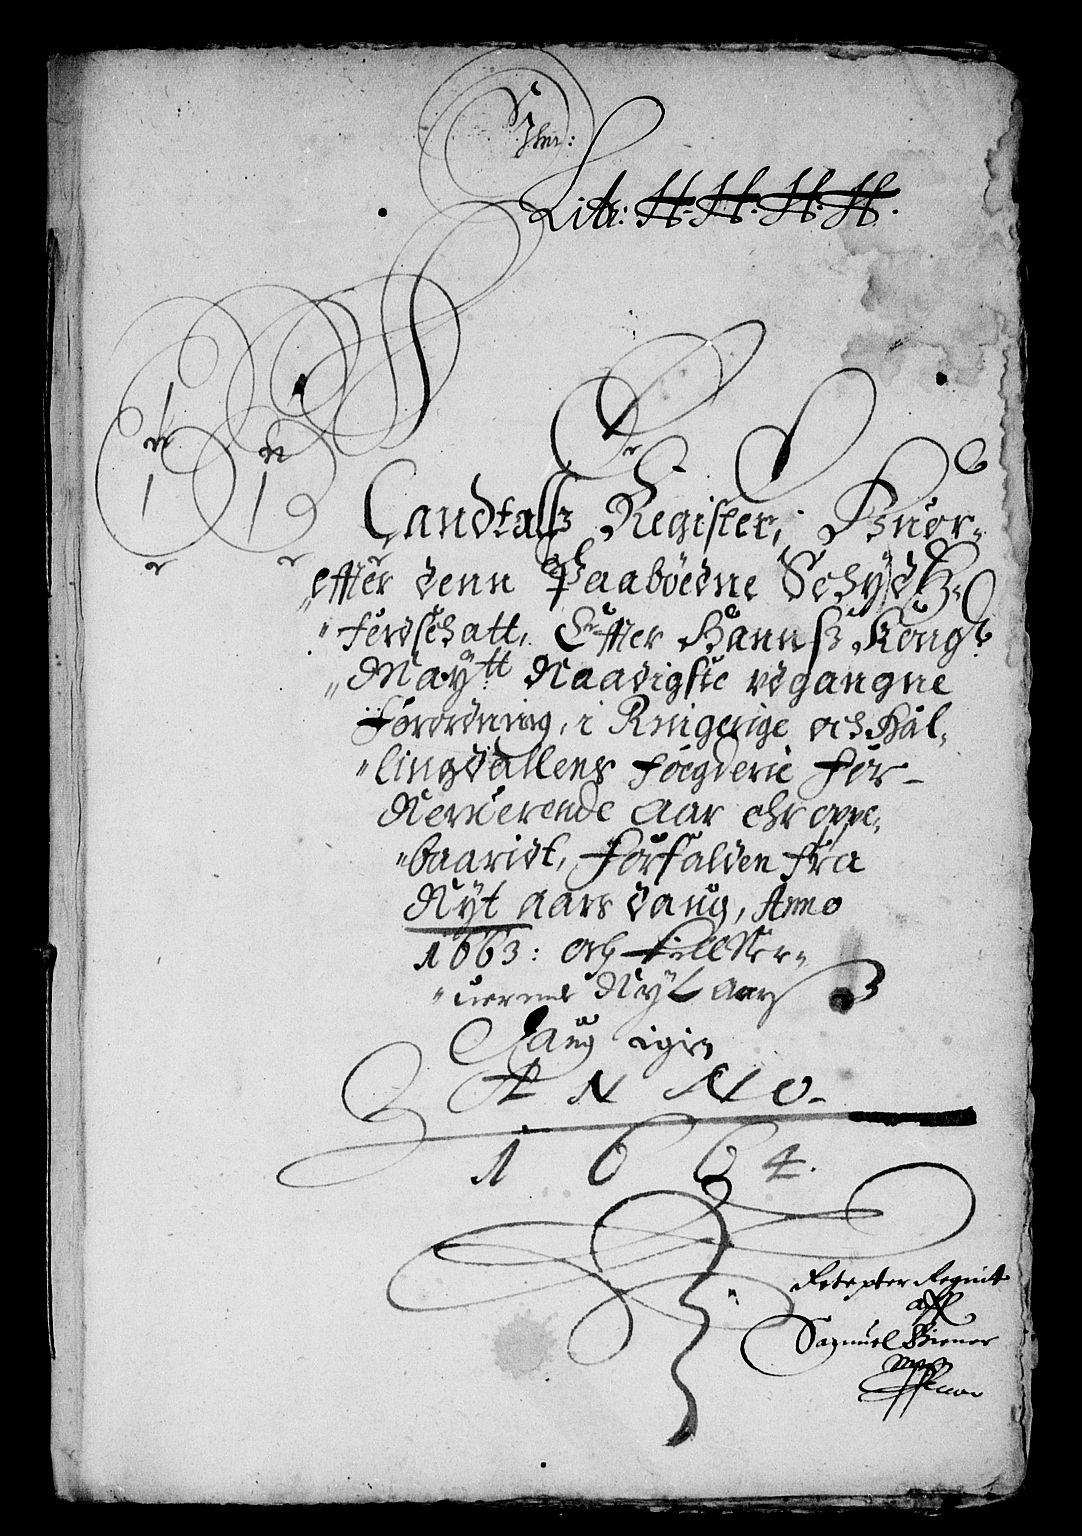 Litr: H: H: H: H.
Landtalß Register, Huor-
effter denn Paabödne Schydtz-
ferdschatt, Effter Hannß Kong:
Maytt: Naadigste vdgangne
Forordning, i Ringerige och Hal-
lingdallens Fogderie for-
Neruerende Aar ehr oppe-
baaridt, Forfalden fra
Nyt aars daug, Anno
1663: och till Ner-
uerende Nyt Aars
Daug igien
ANNO.
1664.
Samuel